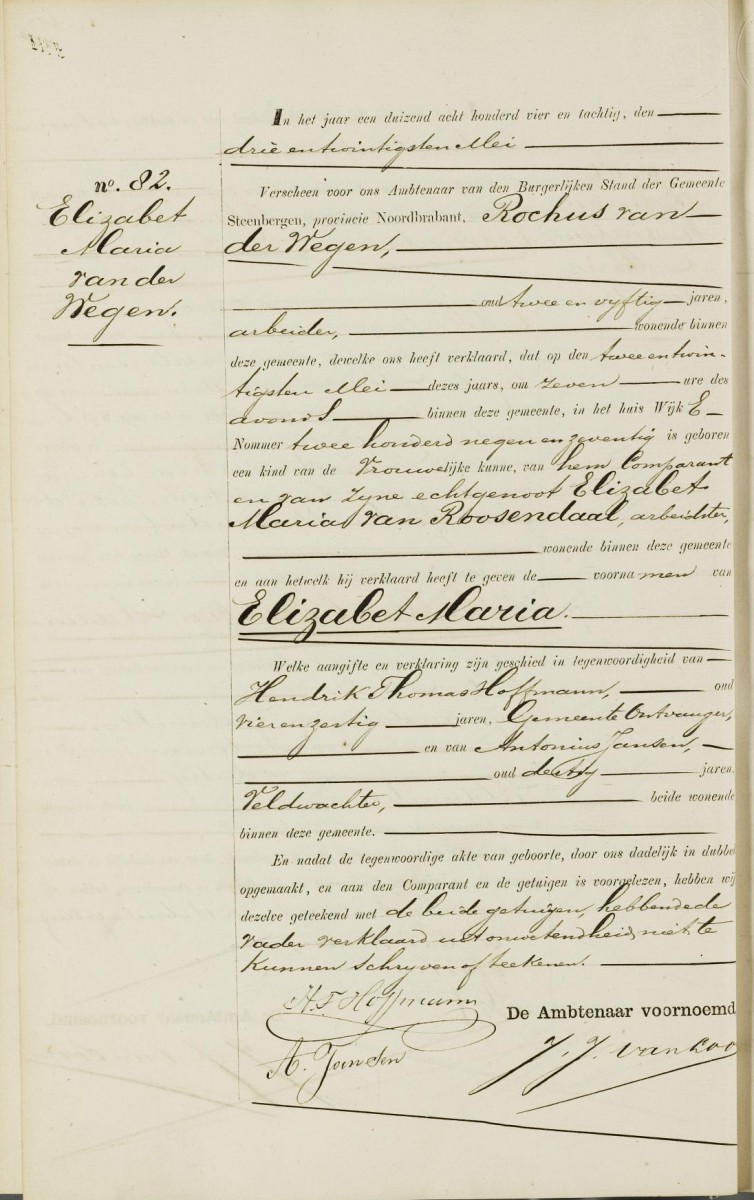 In het jaar een duizend acht honderd vier en tachtig, den
drie entwintigsten Mei
no. 82.
Elizabet
Maria
van der
Wegen.
Verscheen voor ons Ambtenaar van den Burgerlijken Stand der Gemeente
Steenbergen, provincie Noordbrabant, Rochus van
der Wegen,
oud twee en vyftig jaren,
arbeider, wonende binnen
deze gemeente, dewelke ons heeft verklaard, dat op den twee entwin-
tigsten Mei dezes jaars, om zeven ure des
avonds binnen deze gemeente, in het huis Wijk E
Nommer twee honderd negen en zeventig is geboren
een kind van de Vrouwelijke kunne, van hem Comparant
en van zyne echtgenoot Elizabet
Maria van Roosendaal, arbeidster,
wonende binnen deze gemeente
en aan hetwelk hij verklaard heeft te geven de voornamen van
Elizabet Maria.
Welke aangifte en verklaring zijn geschied in tegenwoordigheid van
Hendrik Thomas Hoffmann, oud
vier en zestig jaren, Gemeente Ontvanger,
en van Antonius Jansen,
oud dertig jaren,
Veldwachter, beide wonende
binnen deze gemeente.
En nadat de tegenwoordige akte van geboorte, door ons dadelijk in dubbel
opgemaakt, en aan den Comparant en de getuigen is voorgelezen, hebben wij
dezelve geteekend met de beide getuigen, hebbende de
vader verklaard uit onwetendheid niet te
kunnen schryven of teekenen.
H.T. Hoffmann
De Ambtenaar voornoemd
A. Jansen
J. J. van